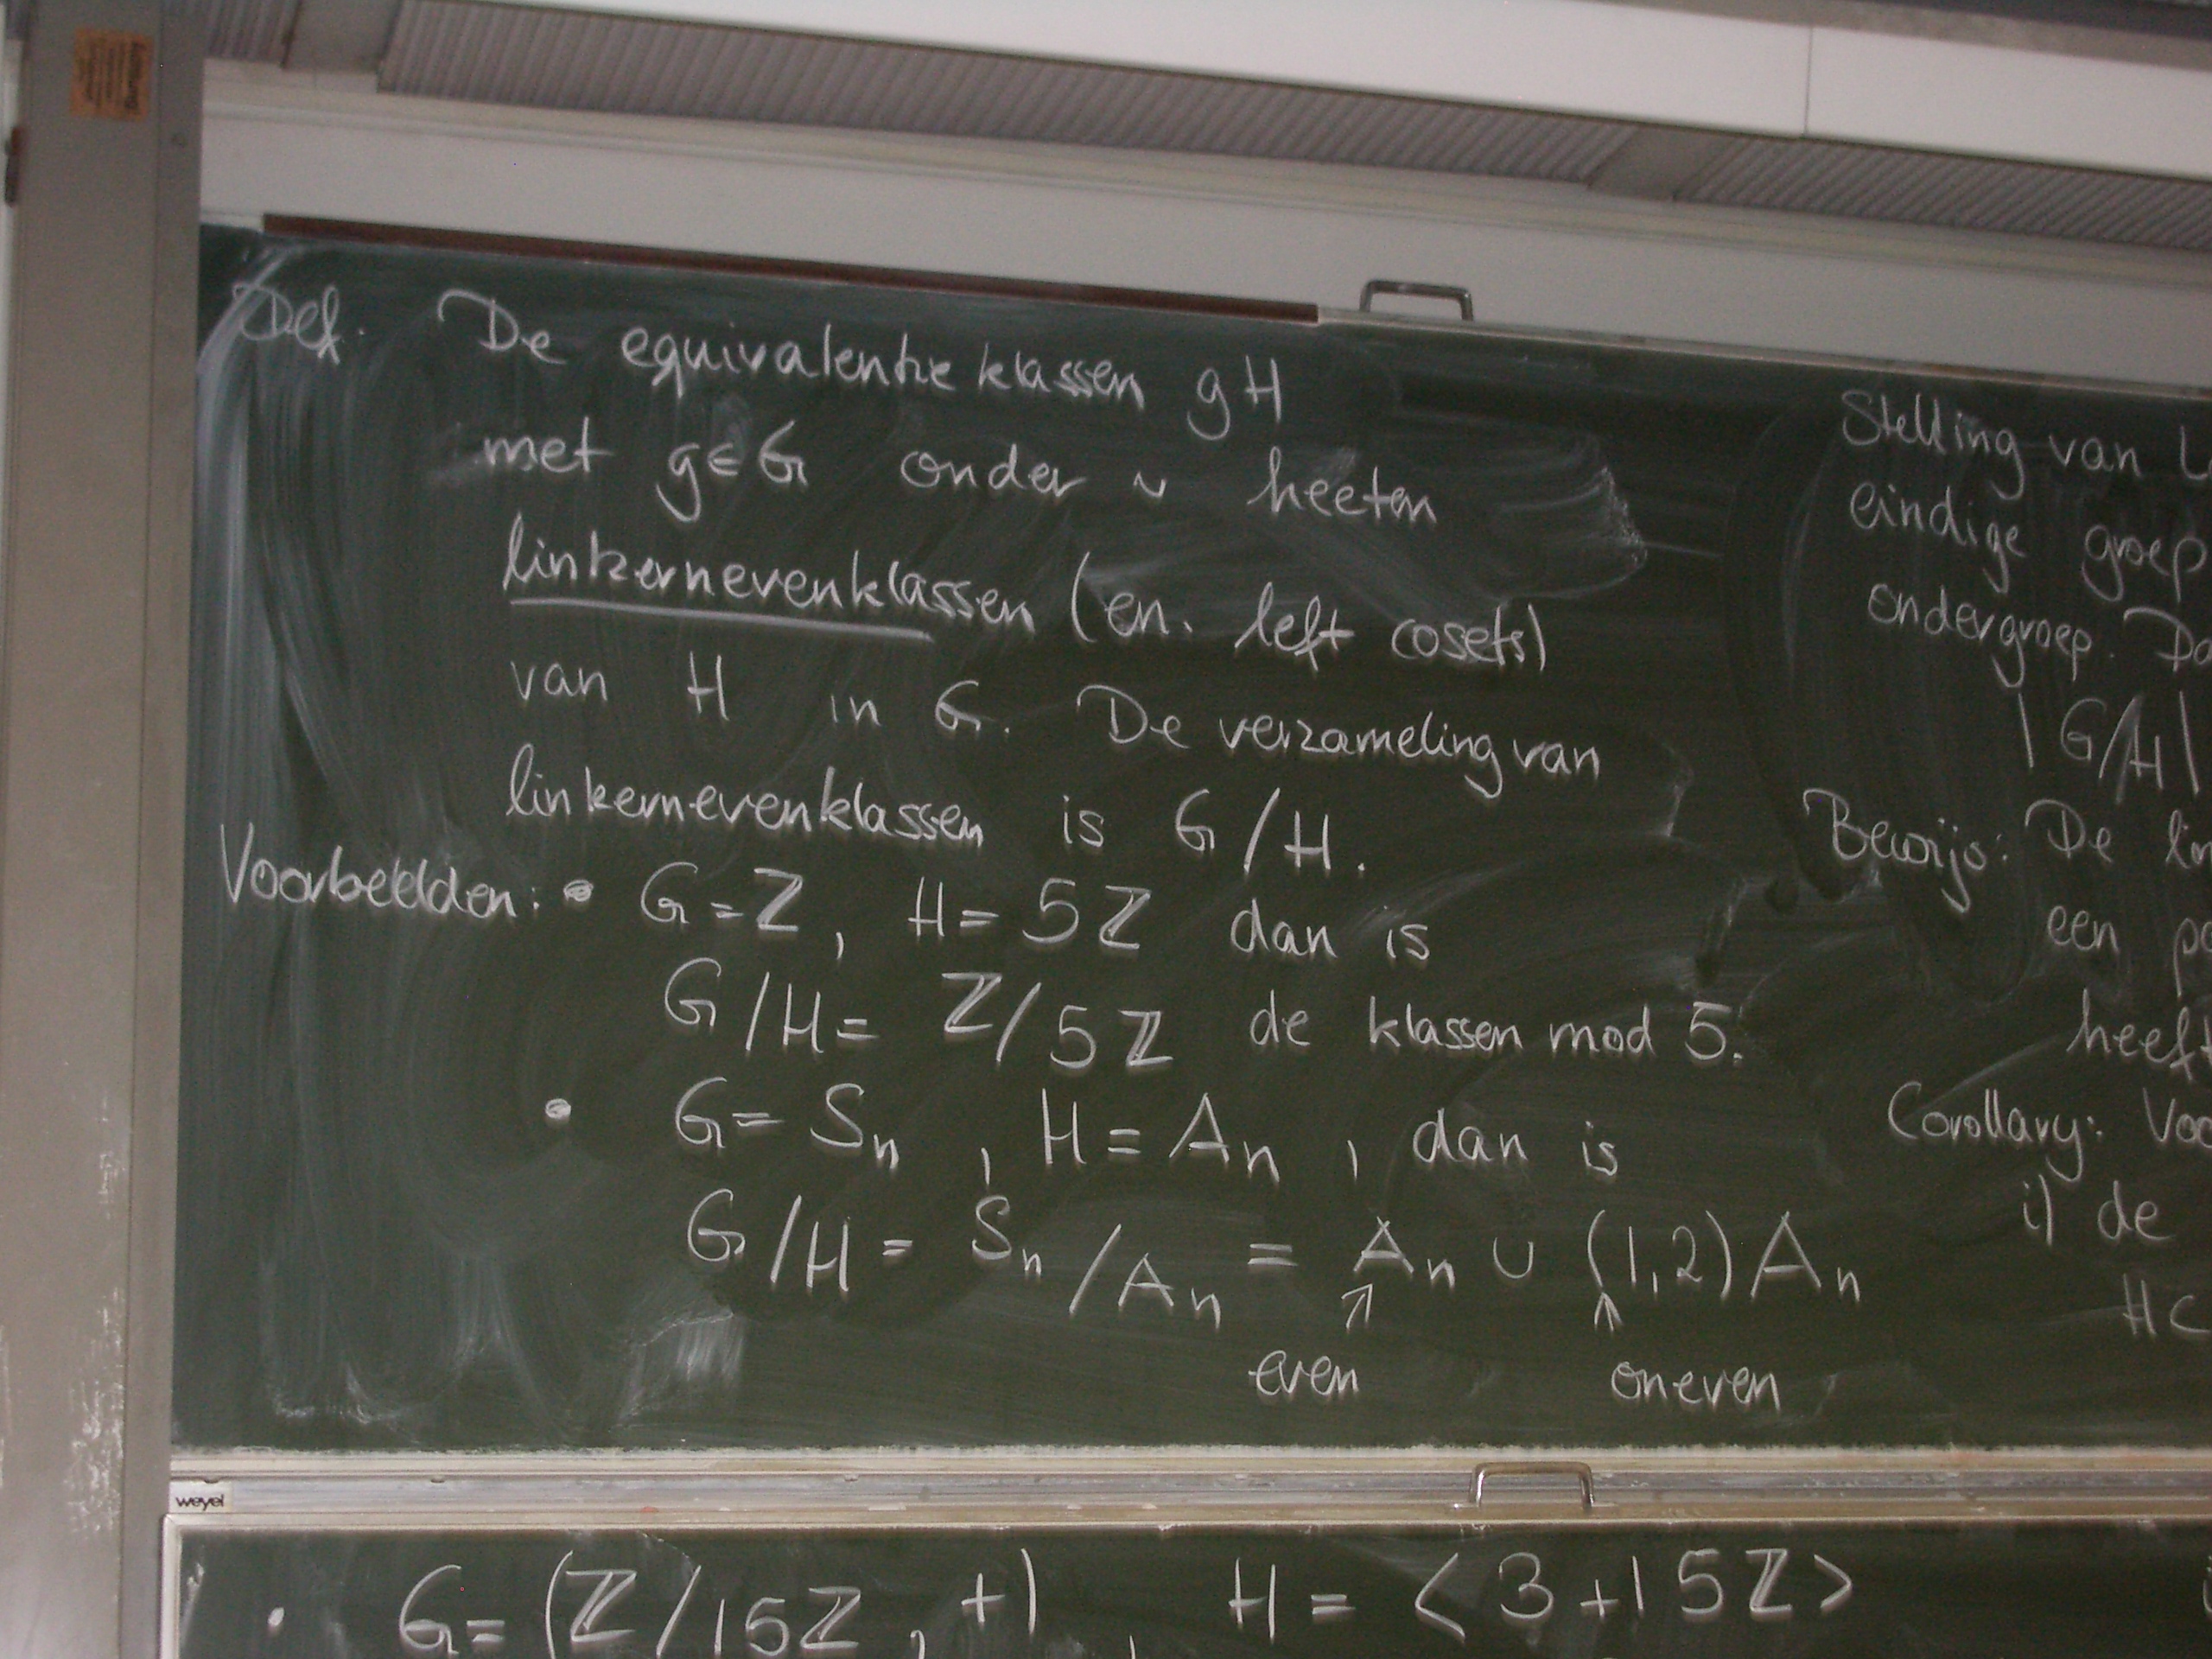 Def. De equivalentie klassen gH
met g∈G onder ~ heeten
linkernevenklassen (en. left cosets)
van H in G. De verzameling van
linkernevenklassen is G/H.
Voorbeelden: • G=ℤ, H=5ℤ dan is
G/H= ℤ/5ℤ de klassen mod 5.
• G= Sn, H= An, dan is
G/H= Sn/An = An ∪ (1,2)An
↑ ↑
even oneven
Stelling van
eindige groep
ondergroep.
|G/H|
Bewijs: De
een
heeft
Corollary:
i) de
weyel
• G= (ℤ/15ℤ, +), H= <3+15ℤ>